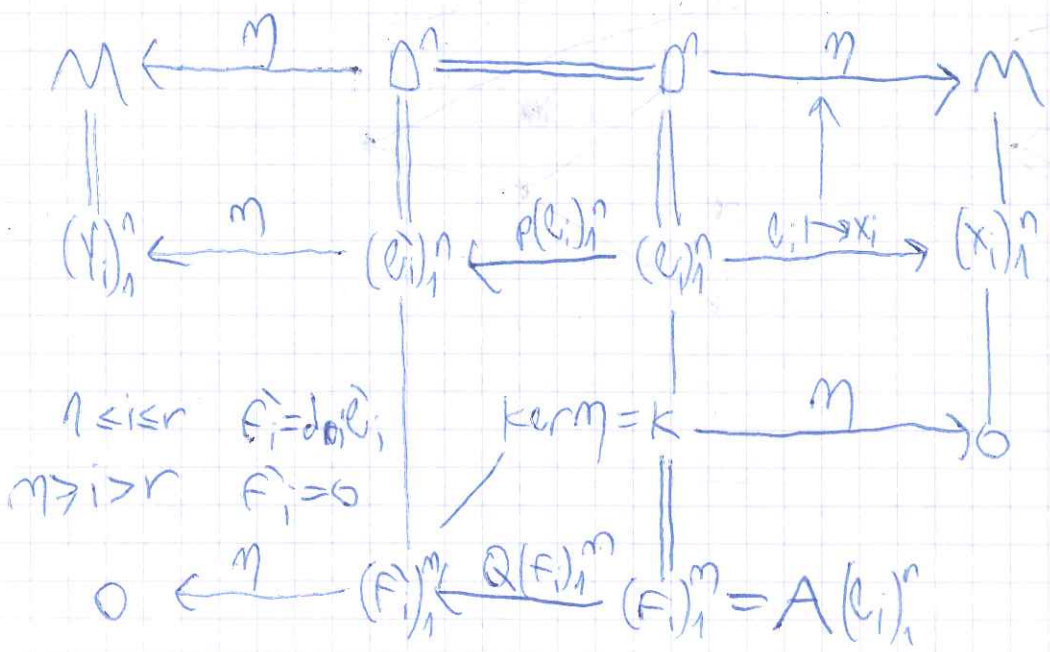 M ←η— Dⁿ === Dⁿ —η→ M
(Y_i)₁ⁿ ←η— (e`_i)₁ⁿ ←P(e_i)₁ⁿ— (e_i)₁ⁿ —e_i ↦ x_i→ (x_i)₁ⁿ
1 ≤ i ≤ r F`_i = d_i e`_i ker η = K —η→ 0
m ≥ i > r F`_i = 0
0 ←η— (F`_i)₁ᵐ ←Q(F_i)₁ᵐ— (F_i)₁ᵐ = A(e_i)₁ⁿ